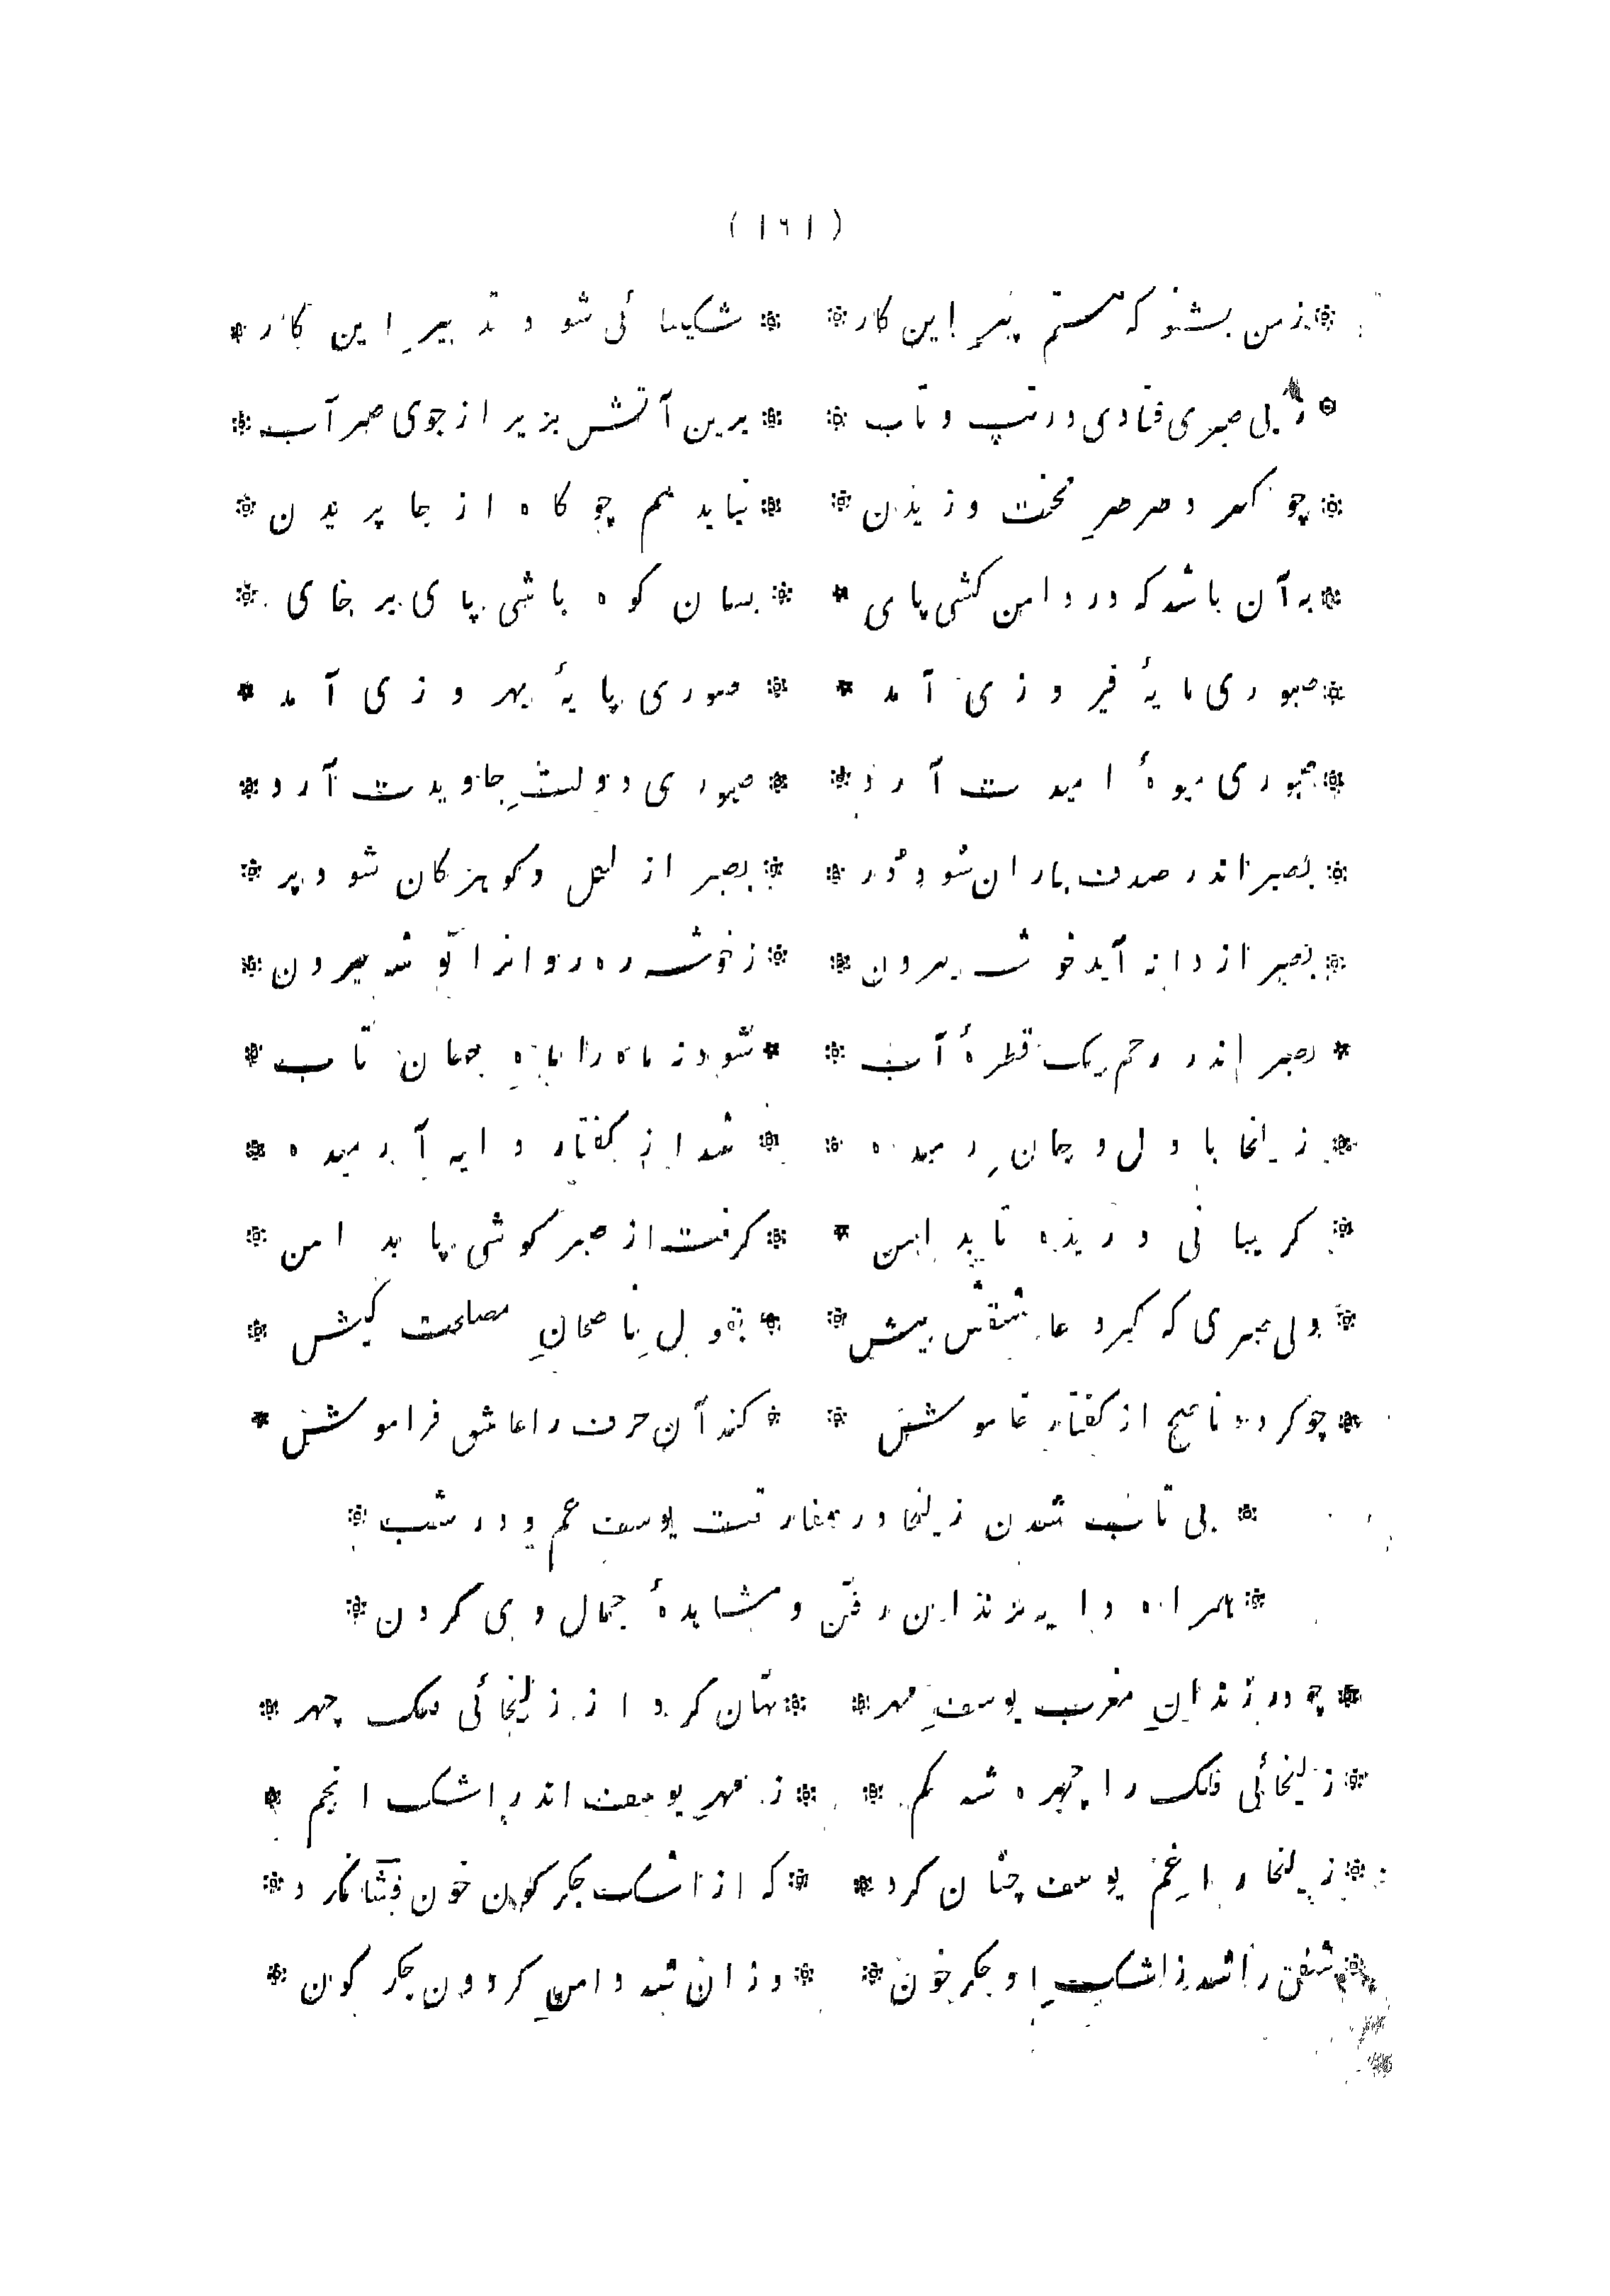 (۱۶۱)
* زمن بشنو که هستم پیرِ این کار * شکیبائی شود تدبیرِ این کار *
* زبی صبری فتادی در تپ و تاب * برین آتش بزیر از جوی صبر آب *
* چو گیرد صرصرِ محنت وزیدن * نباید هم چو کاه از جا پریدن *
* به آن باشد که در دامن کشی پای * بسان کوه باشی پای بر جای *
* صبوری مایهٔ فیروزی آمد * صبوری پایهٔ بهروزی آمد *
* صبوری میوهٔ امیدت آرد * صبوری دولتِ جاویدت آرد *
* بصبر اندر صدف باران شود دُر * بصبر از لعل و گوهر کان شود پر *
* بصبر از دانه آید خوشه بیرون * زخوشه ره روانرا توشه بیرون *
* بصبر اندر رحم یک قطرهٔ آب * شود نه ماه را ماه جهان تاب *
* زلیخا با دل و جانِ رمیده * شد از گفتار دایه آرمیده *
* گریبانی دریده تا بدامن * گرفت از صبر کوشی پا بدامن *
* ولی صبری که گیرد عاشقش پیش * بقولِ ناصحانِ مصلحت کیش *
* چو گردد ناصح از گفتار خاموش * کند آن حرف را عاشق فراموش *
* بی تاب شدن زلیخا در مفارقت یوسف عم و در شب *
* همراه دایه بزندان رفتن و مشاهدهٔ جمال وی کردن *
* چو در زندانِ مغرب یوسفِ مهر * نهان کرد از زلیخائی فلک چهر *
* زلیخائی فلک را چهره شد گم * ز مهرِ یوسف اندر اشک انجم *
* زلیخا را غمِ یوسف چنان کرد * که از اشک جگرگون خون فشان کرد *
* شفق را شد زاشکِ او جگر خون * وزان شد دامنِ گردون جگر گون *